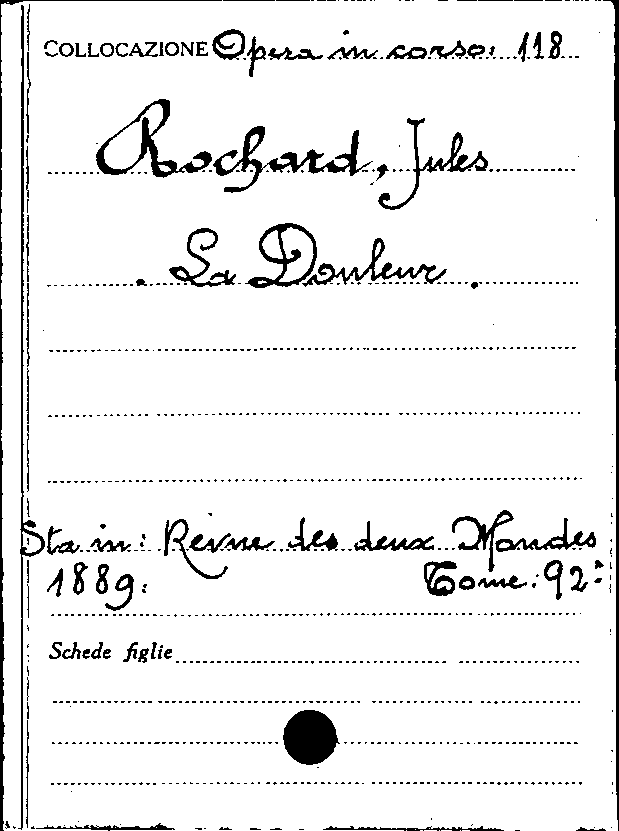 COLLOCAZIONE Opera in corso: 118
Rochard, Jules
. La Douleur .
Sta in: Revue des deux Mondes
1889. Tome: 92º
Schede figlie